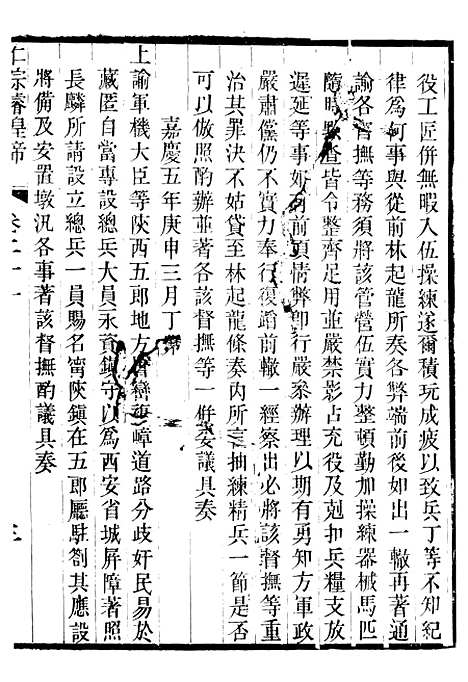 役工匠併無暇入伍操練遂爾積玩成疲以致兵丁等不知紀
律為何事與從前林起龍所奏各弊端前後如出一轍再著通
諭各督撫等務須將該管營伍實力整頓勤加操練器械馬匹
隨時點查皆令整齊足用並嚴禁影占充役及扣兵糧支放
遲延等事如有前項情弊即行嚴叅辦理以期有勇知方軍政
嚴肅儻仍不實力奉行復蹈前轍一經察出必將該督撫等重
治其罪決不姑貸至林起龍條奏內所言抽練精兵一節是否
可以倣照酌辦並著各該督撫等一併妥議具奏
嘉慶五年庚申三月丁
上諭軍機大臣等陝西五郎地方層巒複嶂道路分歧奸民易於
藏匿自當專設總兵大員永資鎮守以為西安省城屏障著照
長麟所請設立總兵一員賜名甯陝鎮在五郎廳駐劄其應設
將備及安置墩汛各事著該督撫酌議具奏
仁宗睿皇帝 卷二十一 三